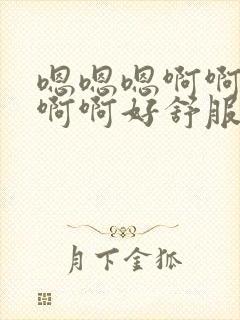 嗯嗯嗯啊啊
啊啊好舒服
月下金狐